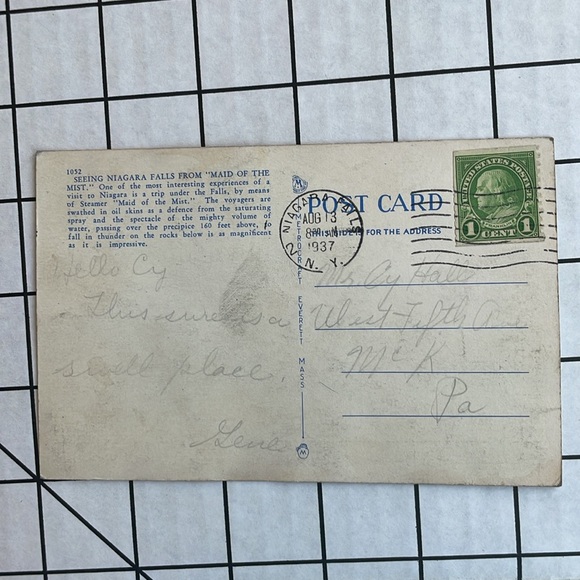 1052
SEEING NIAGARA FALLS FROM "MAID OF THE
MIST." One of the most interesting experiences of a
visit to Niagara is a trip under the Falls, by means
of Streamer "Maid of the Mist." The voyagers are
swathed in oil skins as a defence from the saturating
spray and the spectacle of the mighty volume of
water, passing over the precipice 160 feet above, to
fall in thunder on the rocks below is as magnificent
as it is impressive.
Hello Cy
This sure is a
swell place.
Gene
METROCRAFT EVERETT MASS.
M
POST CARD
THIS SIDE IS FOR THE ADDRESS
NIAGARA FALLS
2
AUG 13
1937
N. Y.
UNITED STATES POSTAGE
1 CENT 1
Mr Cy
West Fifth Ave
McK
Pa